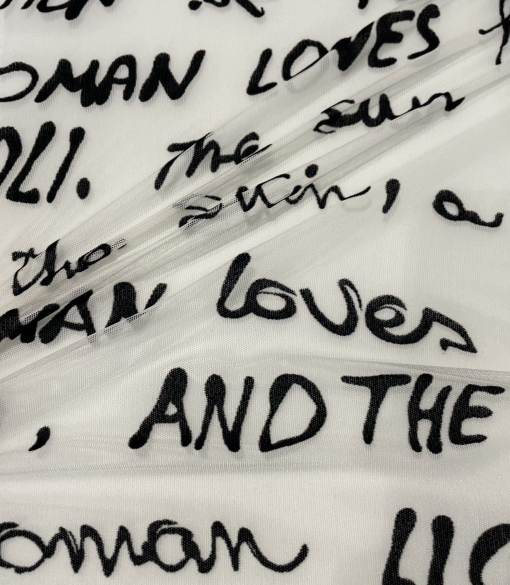 OMAN LOVES
OLI. The sun
the skin, a
MAN loves
, AND THE
oman